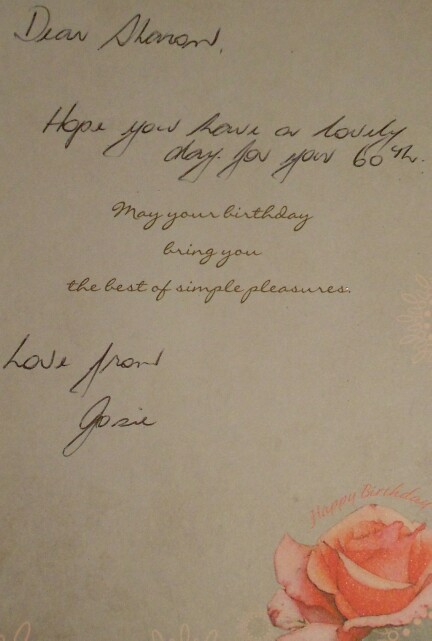 Dear Sharon,
Hope you have a lovely
day for your 60th.
May your birthday
bring you
the best of simple pleasures.
Love from
Josie
Happy Birthday